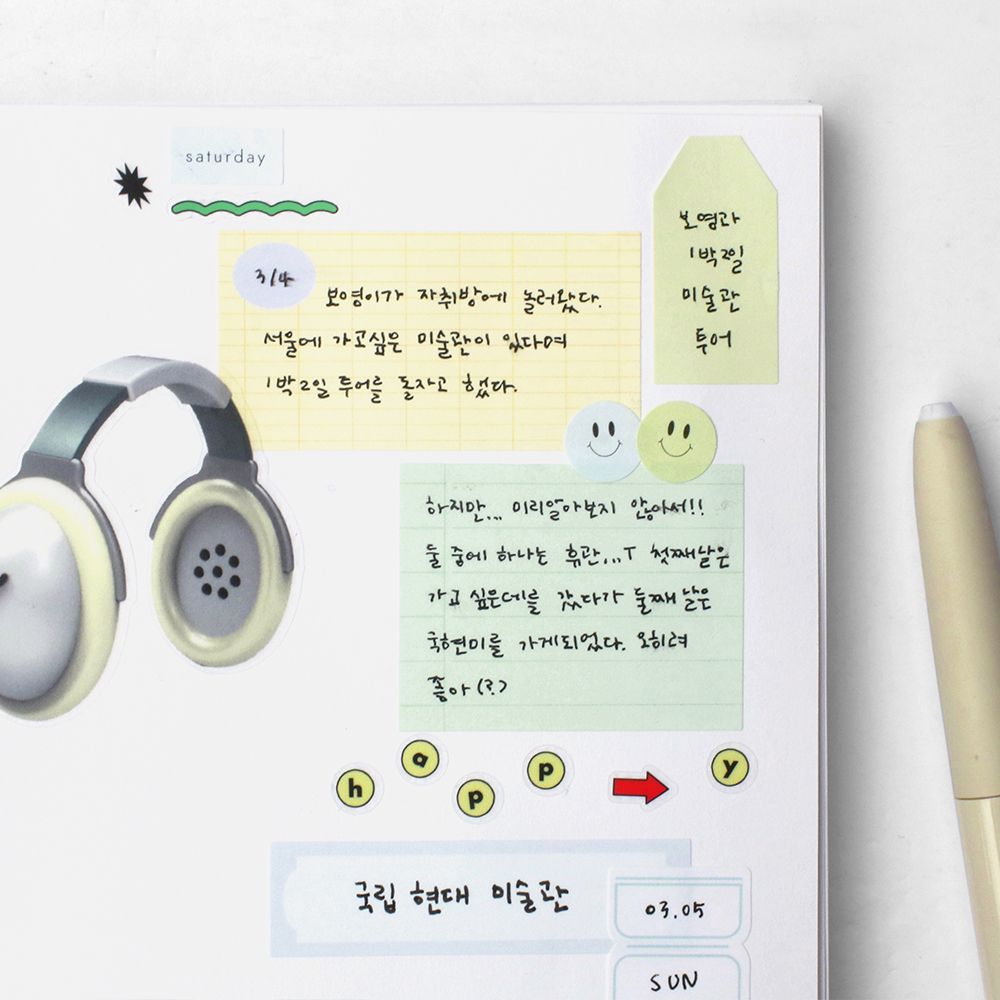 saturday
3/4
보영이가 자취방에 놀러왔다.
서울에 가고싶은 미술관이 있다며
1박2일 투어를 돌자고 했다.
보영과
1박2일
미술관
투어
하지만... 미리알아보지 않아서!!
둘 중에 하나는 휴관...T 첫째날은
가고 싶은데를 갔다가 둘째날은
국현미를 가게되었다. 오히려
좋아(?)
happy
국립 현대 미술관
03.05
SUN